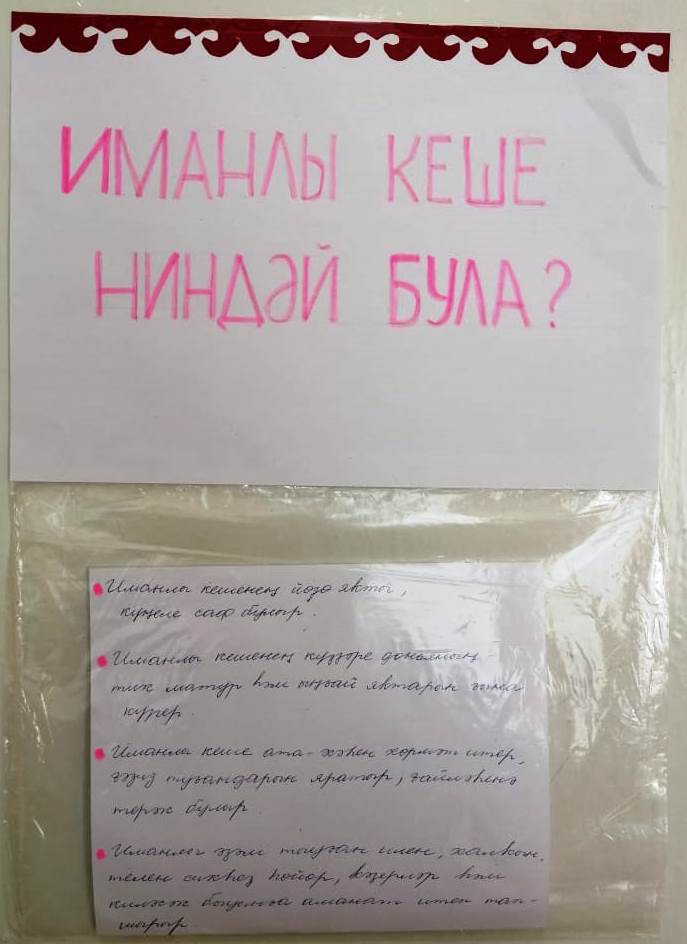 ИМАНЛЫ КЕШЕ
НИНДӘЙ БУЛА?
Иманлы кешенең йөзө яҡты,
күңеле саф булыр.
Иманлы кешенең күҙҙәре донъяның -
тик матур һәм ыңғай яҡтарын ғына
күрер.
Иманлы кеше ата-әсәһен хөрмәт итер,
ғәзиз туғандарын яратыр, ғаиләһенә
терәк булыр.
Иманлы әҙәм тыуған илен, халҡын,
телен сикһеҙ һөйөр, ҡәҙерләр һәм
киләсәк быуынға аманат итеп тап-
шырыр.